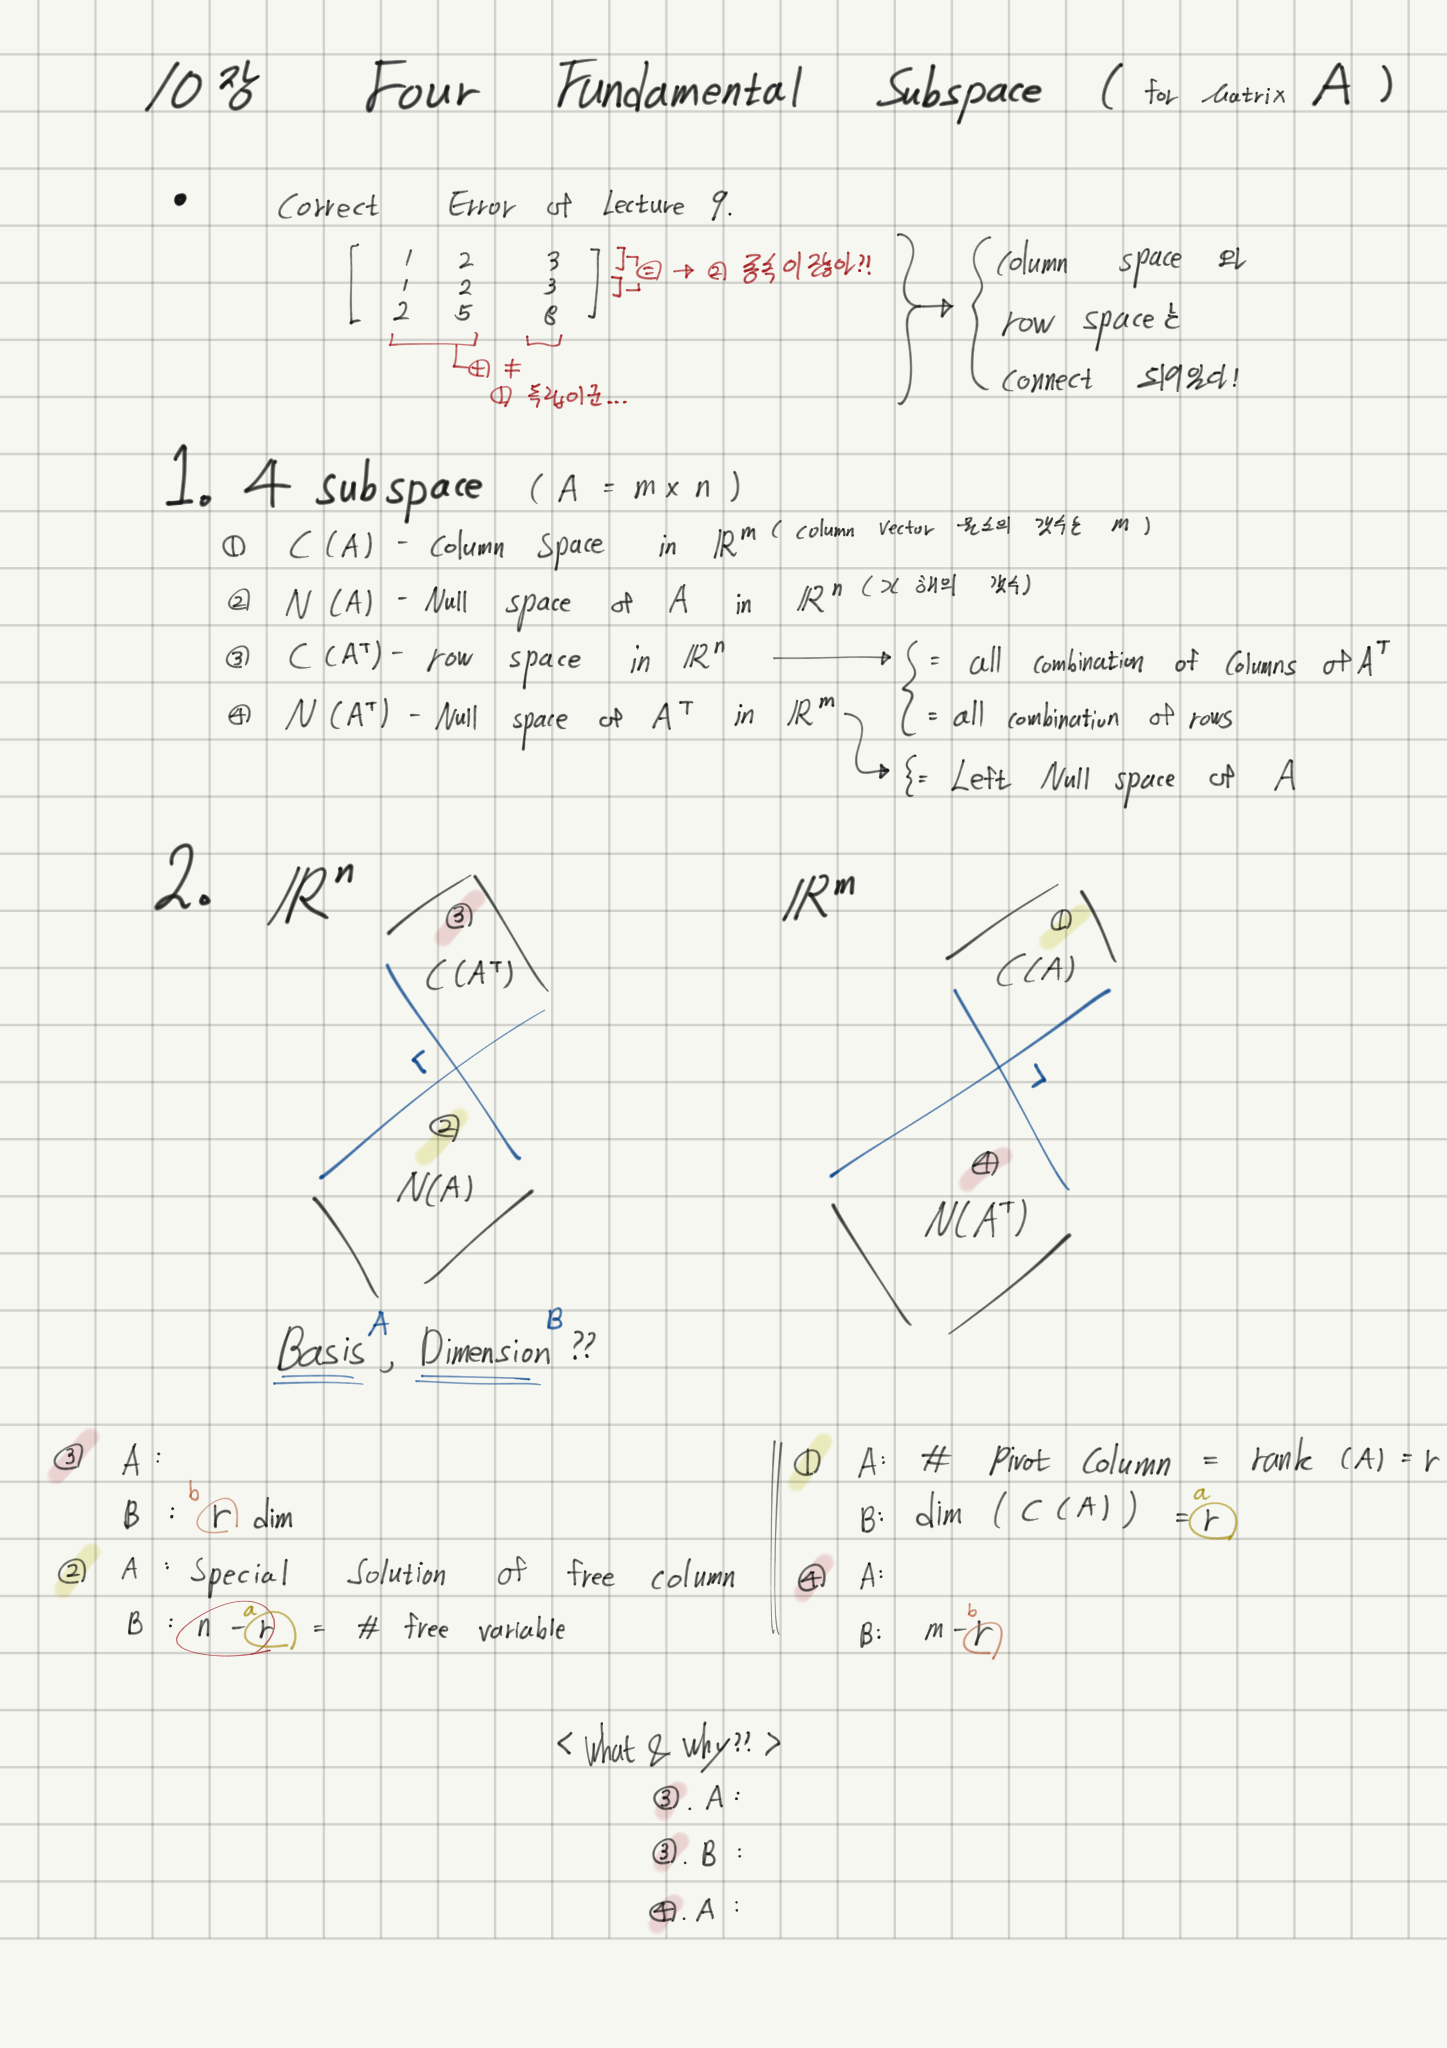 10강 Four Fundamental Subspace ( for Matrix A )
• Correct Error of Lecture 9.
[ 1 2 3 ] = → ② 종속이잖아?!
1 2 3
2 5 8
≠
① 독립이군...
column space 와
row space는
connect 되어있다!
1. 4 subspace ( A = m x n )
① C(A) - Column Space in ℝᵐ ( column vector 원소의 갯수는 m )
② N(A) - Null space of A in ℝⁿ ( x 해의 갯수 )
③ C(Aᵀ) - row space in ℝⁿ → { = all combination of columns of Aᵀ
= all combination of rows
④ N(Aᵀ) - Null space of Aᵀ in ℝᵐ
{ = Left Null space of A
2. ℝⁿ
③
C(Aᵀ)
②
N(A)
ℝᵐ
①
C(A)
④
N(Aᵀ)
Basis A , Dimension B ??
③ A :
B : r b dim
② A : Special Solution of free column
B : n - r a = # free variable
① A: # Pivot Column = rank (A) = r
B: dim ( C(A) ) = r a
④ A:
B: m - r b
< What & why?? >
③. A :
③. B :
④. A :